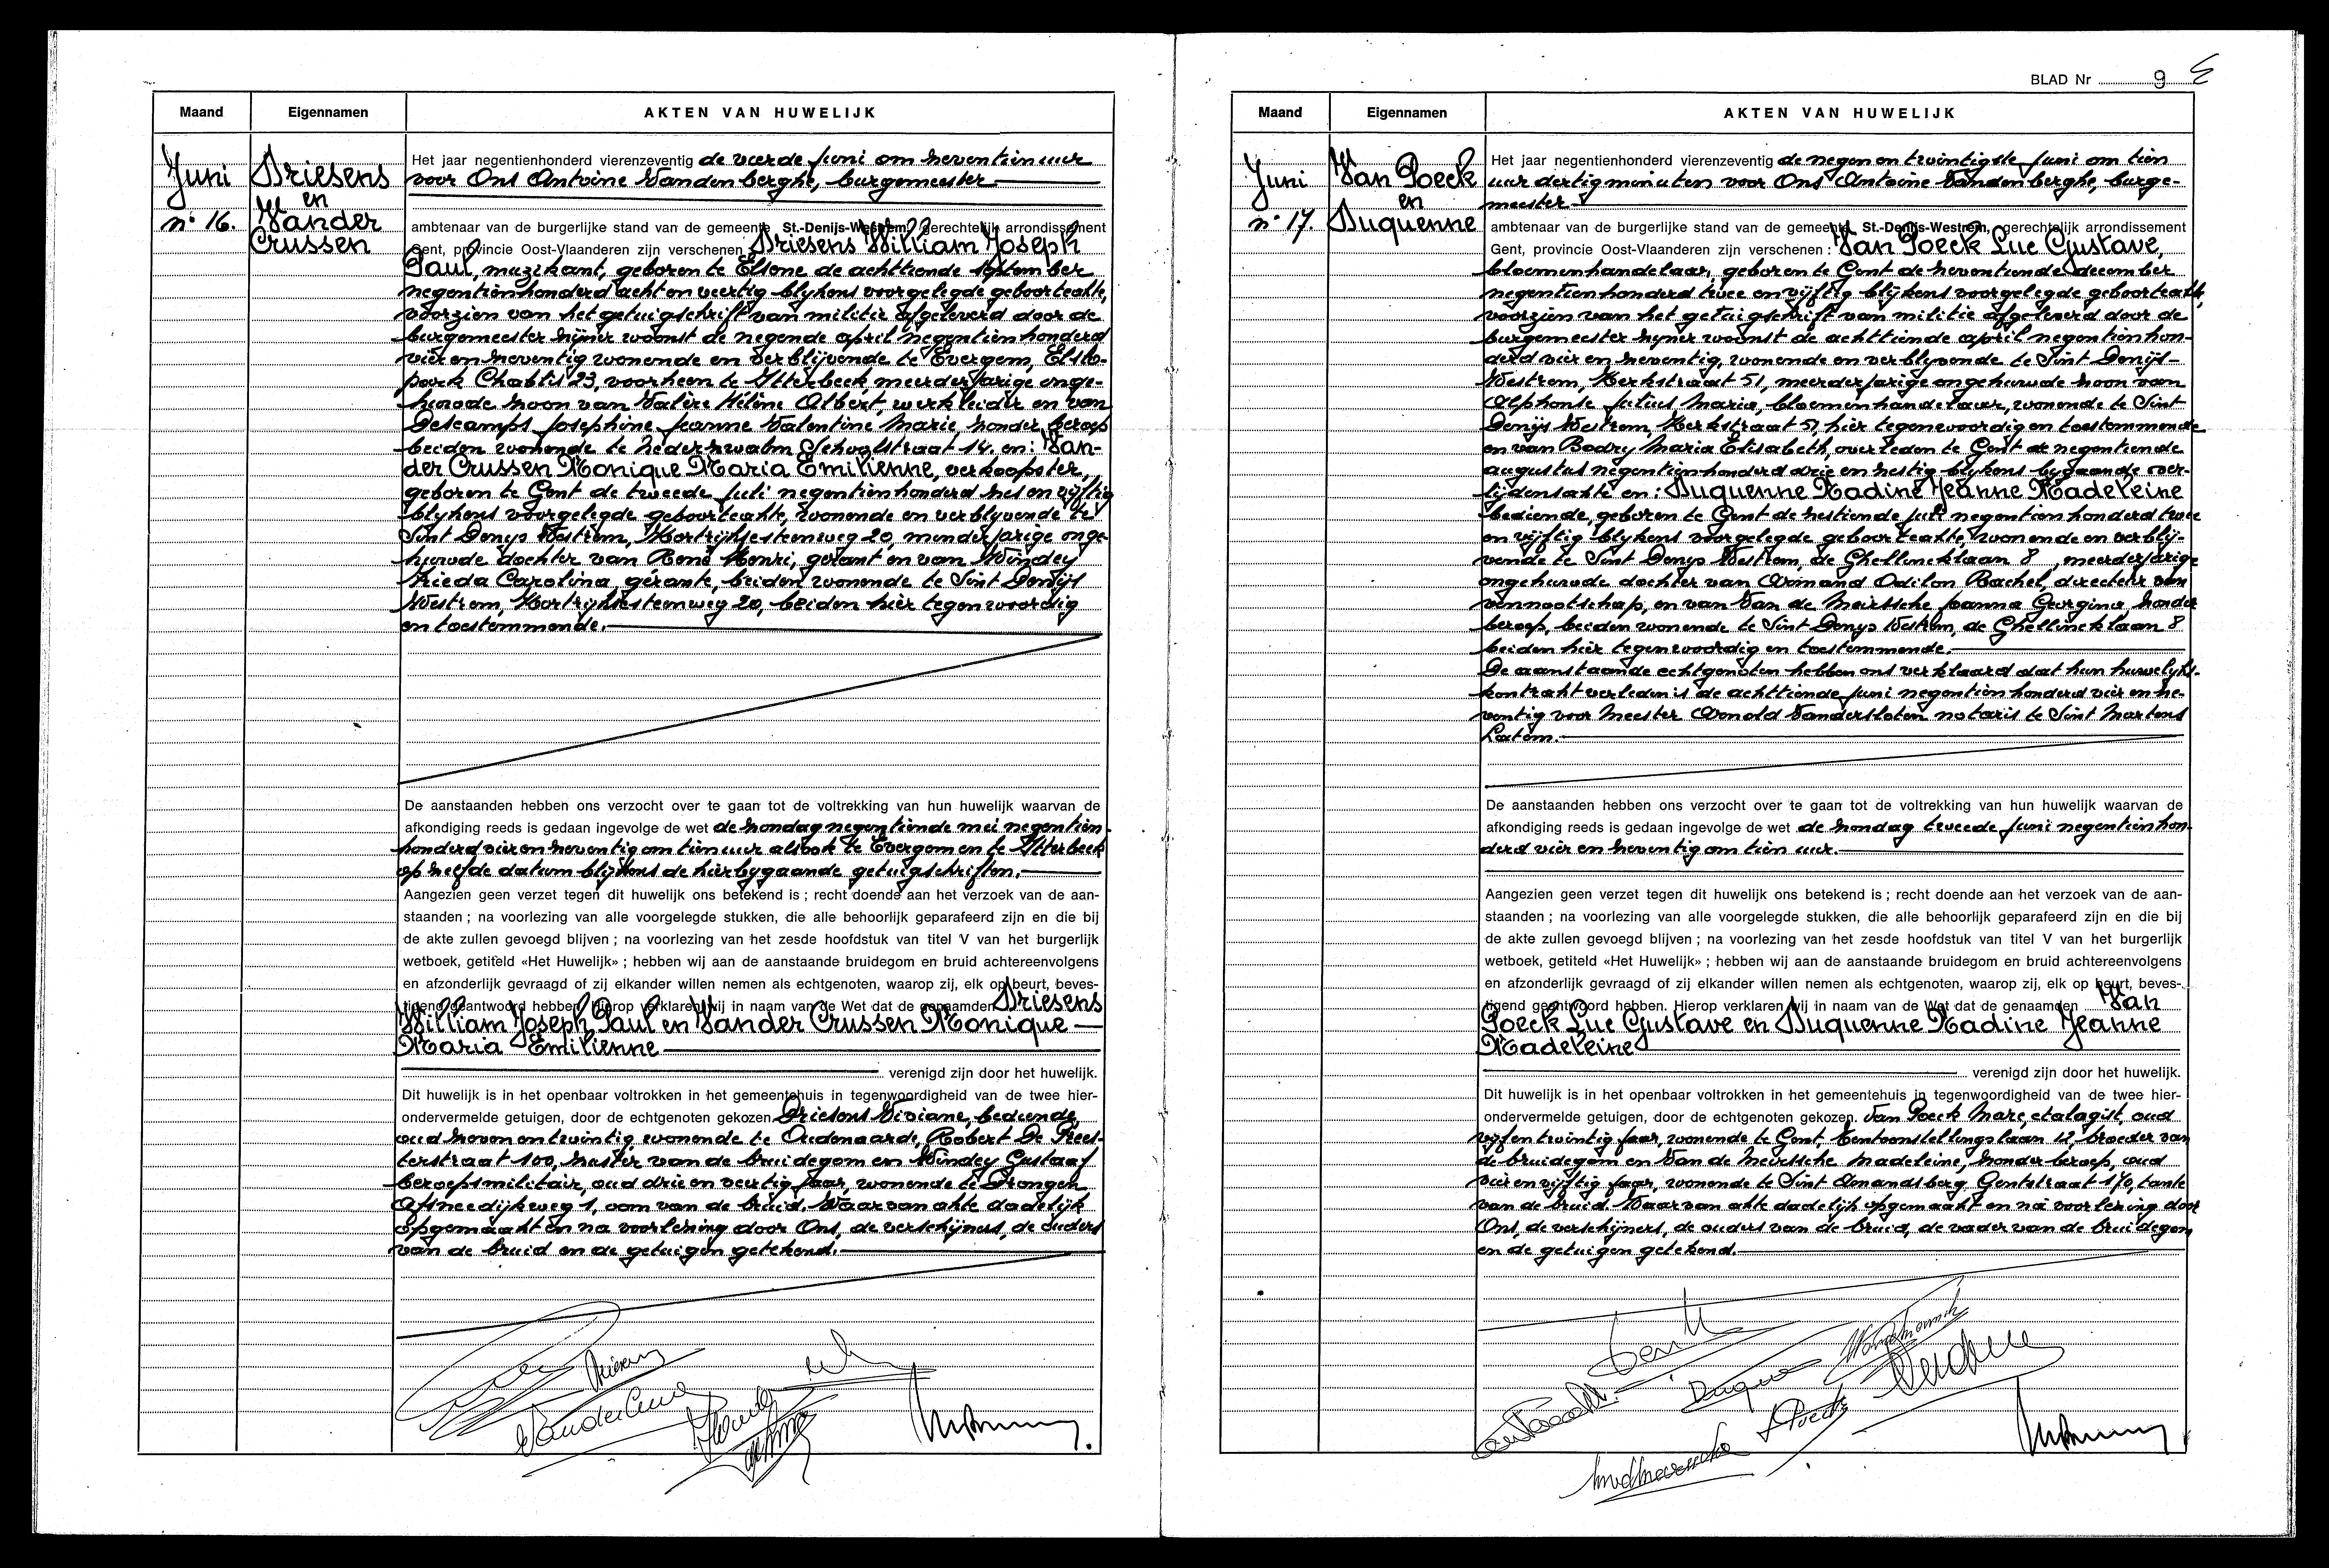 Maand Eigennamen AKTEN VAN HUWELIJK
Juni
n° 16.
Driesens
en
Vander
Crussen
Het jaar negentienhonderd vierenzeventig de vierde juni om zeventien uur
voor Ons Antoine Vandenberghe, burgemeester
ambtenaar van de burgerlijke stand van de gemeente St.-Denijs-Westrem, gerechtelijk arrondissement
Gent, provincie Oost-Vlaanderen zijn verschenen : Driesens William Joseph
Paul, muzikant, geboren te Elsene de achttiende september
negentienhonderd acht en veertig blijkens voorgelegde geboorteakte,
voorzien van het getuigschrift van militie afgeleverd door de
burgemeester zijner woonst de negende april negentienhonderd
vier en zeventig wonende en verblijvende te Evergem, Elslo-
park Chablis 23, voorheen te Itterbeek meerderjarige onge-
huwde zoon van Valère Hélène Albert, werkleider en van
Descamps Josephine Jeanne Valentine Marie, zonder beroep
beiden wonende te Nederzwalm Schoolstraat 14. en: Van-
der Crussen Monique Maria Emilienne, verkoopster,
geboren te Gent de tweede juli negentienhonderd zes en vijftig
blijkens voorgelegde geboorteakte, wonende en verblijvende te
Sint Denijs Westrem, Kortrijksesteenweg 20, minderjarige onge-
huwde dochter van René Henri, gerant en van Windey
Frieda Carolina, gérante, beiden wonende te Sint Denijs
Westrem, Kortrijksesteenweg 20, beiden hier tegenwoordig
en toestemmende.
De aanstaanden hebben ons verzocht over te gaan tot de voltrekking van hun huwelijk waarvan de
afkondiging reeds is gedaan ingevolge de wet de zondag negentiende mei negentien-
honderd vier en zeventig om tien uur alsook te Evergem en te Itterbeek
op zelfde datum blijkens de hierbijgaande getuigschriften.
Aangezien geen verzet tegen dit huwelijk ons betekend is ; recht doende aan het verzoek van de aan-
staanden ; na voorlezing van alle voorgelegde stukken, die alle behoorlijk geparafeerd zijn en die bij
de akte zullen gevoegd blijven ; na voorlezing van het zesde hoofdstuk van titel V van het burgerlijk
wetboek, getiteld «Het Huwelijk» ; hebben wij aan de aanstaande bruidegom en bruid achtereenvolgens
en afzonderlijk gevraagd of zij elkander willen nemen als echtgenoten, waarop zij, elk op beurt, beves-
tigend geantwoord hebben. Hierop verklaren wij in naam van de Wet dat de genaamden Driesens
William Joseph Paul en Vander Crussen Monique
Maria Emilienne
verenigd zijn door het huwelijk.
Dit huwelijk is in het openbaar voltrokken in het gemeentehuis in tegenwoordigheid van de twee hier-
ondervermelde getuigen, door de echtgenoten gekozen. Driesens Viviane, bediende,
oud zeven en twintig wonende te Oudenaarde, Robert De Prees-
terstraat 100, zuster van de bruidegom en Windey Gustaaf
beroepsmilitair, oud drie en veertig jaar, wonende te Drongen
Afsneedijkweg 1, oom van de bruid. Waarvan akte dadelijk
opgemaakt en na voorlezing door Ons, de verschijners, de ouders
van de bruid en de getuigen getekend.
BLAD Nr 9
Maand Eigennamen AKTEN VAN HUWELIJK
Juni
n° 17.
Van Poeck
en
Duquenne
Het jaar negentienhonderd vierenzeventig de negen en twintigste juni om tien
uur dertig minuten voor Ons Antoine Vandenberghe, burge-
meester
ambtenaar van de burgerlijke stand van de gemeente St.-Denijs-Westrem, gerechtelijk arrondissement
Gent, provincie Oost-Vlaanderen zijn verschenen : Van Poeck Luc Gustave,
bloemenhandelaar, geboren te Gent de zeventiende december
negentienhonderd twee en vijftig blijkens voorgelegde geboorteakte,
voorzien van het getuigschrift van militie afgeleverd door de
burgemeester zijner woonst de achttiende april negentienhon-
derd vier en zeventig, wonende en verblijvende te Sint Denijs-
Westrem, Kerkstraat 51, meerderjarige ongehuwde zoon van
Alphonse Julius Maria, bloemenhandelaar, wonende te Sint
Denijs Westrem, Kerkstraat 51, hier tegenwoordig en toestemmende
en van Bodry Maria Elisabeth, overleden te Gent de negentiende
augustus negentienhonderd drie en zestig blijkens bijgaande over-
lijdensakte en: Duquenne Nadine Jeanne Madeleine
bediende, geboren te Gent de zestiende juli negentienhonderd twee
en vijftig blijkens voorgelegde geboorteakte, wonende en verblij-
vende te Sint Denijs Westrem, de Ghellincklaan 8, meerderjarige
ongehuwde dochter van Armand Odilon Rachel, directeur van
vennootschap, en van Van de Meirssche Joanna Georgina zonder
beroep, beiden wonende te Sint Denijs Westrem, de Ghellincklaan 8
beiden hier tegenwoordig en toestemmende.
De aanstaande echtgenoten hebben ons verklaard dat hun huwelijks-
kontrakt verleden is de achttiende juni negentienhonderd vier en ze-
ventig voor Meester Arnold Vandersloten notaris te Sint Martens
Latem.
De aanstaanden hebben ons verzocht over te gaan tot de voltrekking van hun huwelijk waarvan de
afkondiging reeds is gedaan ingevolge de wet de zondag tweede juni negentienhon-
derd vier en zeventig om tien uur.
Aangezien geen verzet tegen dit huwelijk ons betekend is ; recht doende aan het verzoek van de aan-
staanden ; na voorlezing van alle voorgelegde stukken, die alle behoorlijk geparafeerd zijn en die bij
de akte zullen gevoegd blijven ; na voorlezing van het zesde hoofdstuk van titel V van het burgerlijk
wetboek, getiteld «Het Huwelijk» ; hebben wij aan de aanstaande bruidegom en bruid achtereenvolgens
en afzonderlijk gevraagd of zij elkander willen nemen als echtgenoten, waarop zij, elk op beurt, beves-
tigend geantwoord hebben. Hierop verklaren wij in naam van de Wet dat de genaamden Van
Poeck Luc Gustave en Duquenne Nadine Jeanne
Madeleine
verenigd zijn door het huwelijk.
Dit huwelijk is in het openbaar voltrokken in het gemeentehuis in tegenwoordigheid van de twee hier-
ondervermelde getuigen, door de echtgenoten gekozen. Van Poeck Marc, etalagist, oud
vijf en twintig jaar, wonende te Gent, Tentoonstellingslaan 12 broeder van
de bruidegom en Van de Meirssche Madeleine, zonder beroep, oud
vier en vijftig jaar, wonende te Sint Amandsberg Gentstraat 170, tante
van de bruid. Waarvan akte dadelijk opgemaakt en na voorlezing door
Ons, de verschijners, de ouders van de bruid, de vader van de bruidegom
en de getuigen getekend.